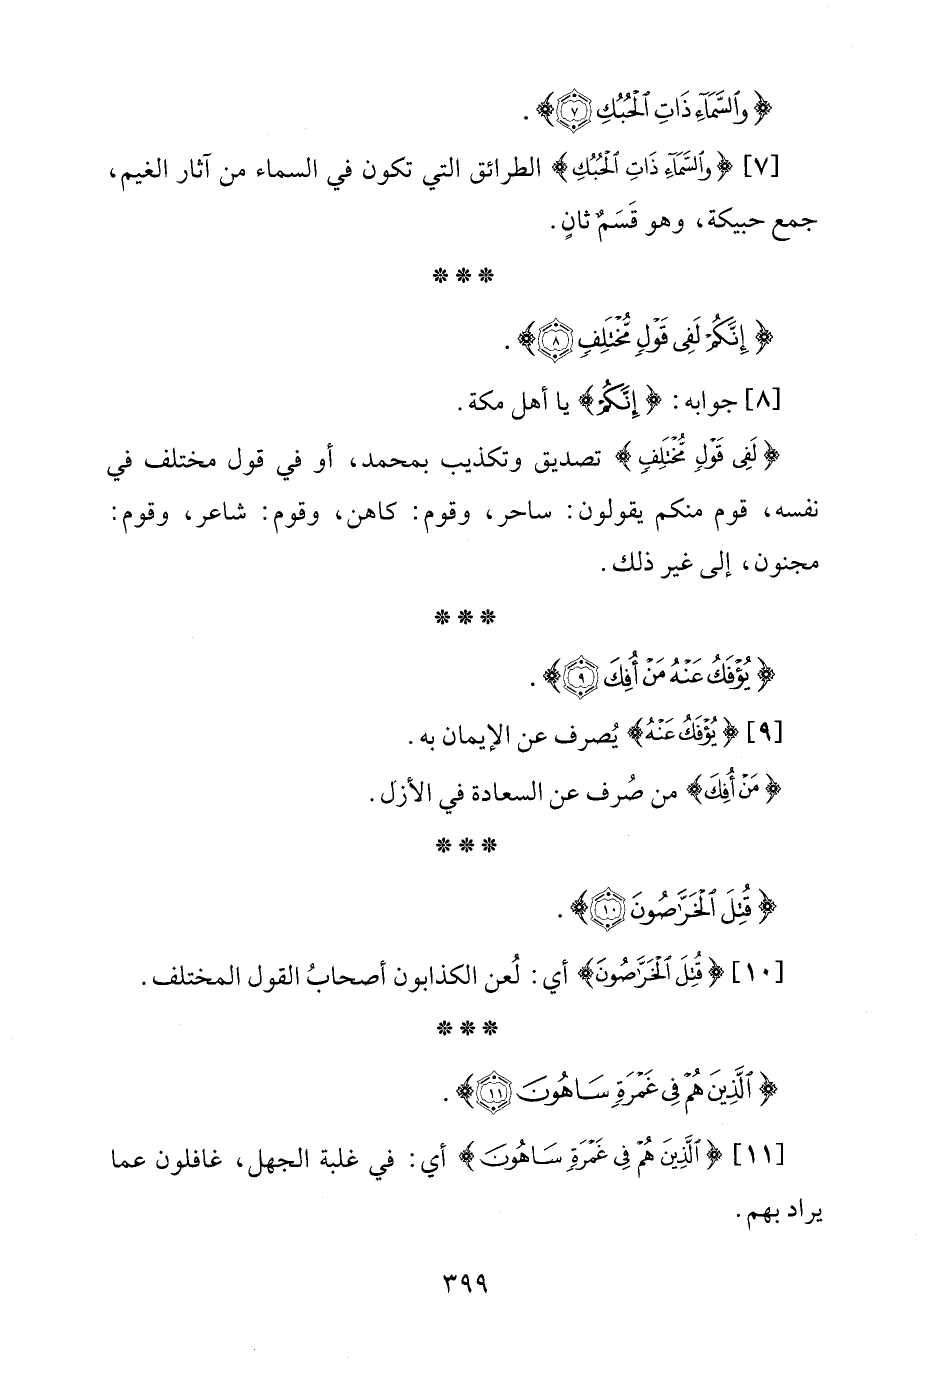 ﴿ وَٱلسَّمَآءِ ذَاتِ ٱلْحُبُكِ ﴿٧﴾﴾ .
[٧] ﴿ وَٱلسَّمَآءِ ذَاتِ ٱلْحُبُكِ﴾ الطرائق التي تكون في السماء من آثار الغيم،
جمع حبيكة، وهو قَسَمٌ ثانٍ.
* * *
﴿ إِنَّكُمْ لَفِى قَوْلٍ مُّخْتَلِفٍ ﴿٨﴾﴾ .
[٨] جوابه: ﴿ إِنَّكُمْ﴾ يا أهل مكة.
﴿ لَفِى قَوْلٍ مُّخْتَلِفٍ ﴾ تصديق وتكذيب بمحمد، أو في قول مختلف في
نفسه، قوم منكم يقولون: ساحر، وقوم: كاهن، وقوم: شاعر، وقوم:
مجنون، إلى غير ذلك.
* * *
﴿ يُؤْفَكُ عَنْهُ مَنْ أُفِكَ ﴿٩﴾﴾ .
[٩] ﴿ يُؤْفَكُ عَنْهُ﴾ يُصرف عن الإيمان به.
﴿ مَنْ أُفِكَ﴾ من صُرف عن السعادة في الأزل.
* * *
﴿ قُتِلَ ٱلْخَرَّٰصُونَ ﴿١٠﴾﴾ .
[١٠] ﴿ قُتِلَ ٱلْخَرَّٰصُونَ﴾ أي: لُعن الكذابون أصحابُ القول المختلف.
* * *
﴿ ٱلَّذِينَ هُمْ فِى غَمْرَةٍ سَاهُونَ ﴿١١﴾﴾ .
[١١] ﴿ ٱلَّذِينَ هُمْ فِى غَمْرَةٍ سَاهُونَ ﴾ أي: في غلبة الجهل، غافلون عما
يراد بهم.
٣٩٩